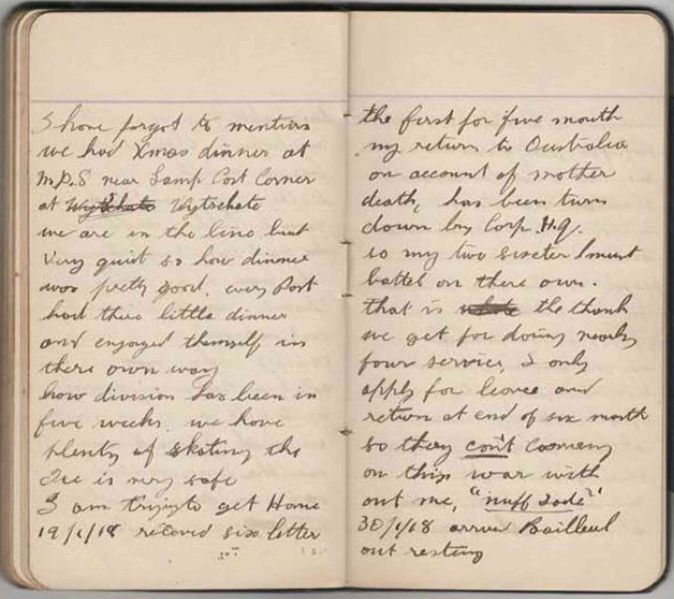 I have forgot to mention
we had Xmas dinner at
M.D.S near Lamp Post Corner
at Wytschate Wytschate
we are in the line but
very quiet so how dinner
was pretty good, every Post
had there little dinner
and enjoyed themself in
there own way
how division has been in
five weeks. we have
plenty of skating the
Ice is very safe
I am trying to get Home
19/1/18 received six letter
the first for five month
my return to Australia
on account of mother
death, has been turn
down by Corp. H.Q.
so my two sister I must
battel on there own.
that is the thank
we get for doing nearly
four service, I only
apply for leave and
return at end of six month
so they con't
on this war with
out me, "nuff sade"
30/1/18 arrive Bailleul
out resting